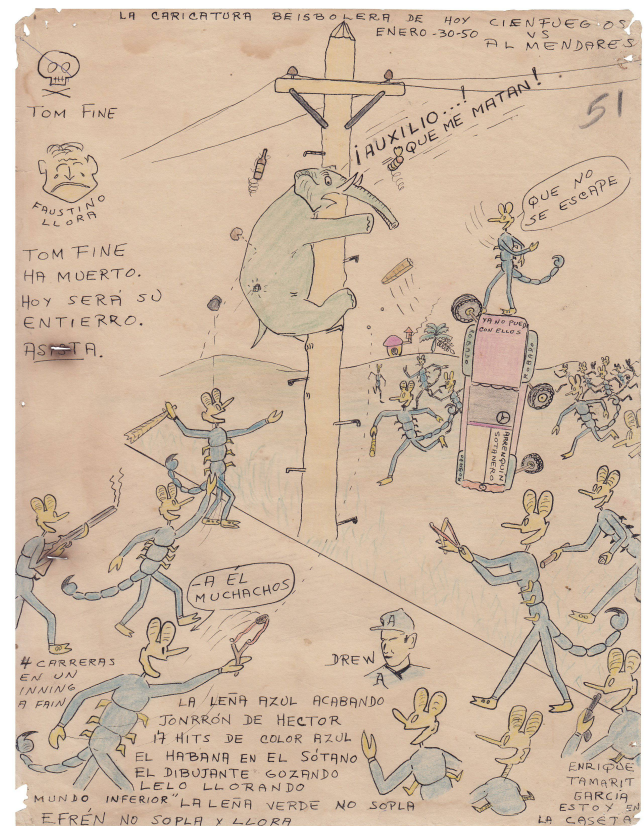 LA CARICATURA BEISBOLERA DE HOY
ENERO-30-50
CIENFUEGOS
VS
ALMENDARES
51
TOM FINE
FAUSTINO
LLORA
TOM FINE
HA MUERTO.
HOY SERÁ SU
ENTIERRO.
ASISTA.
¡AUXILIO...!
QUE ME MATAN!
QUE NO
SE ESCAPE
YA NO PUEDO
CON ELLOS
ARRENQUIN
SOTANERO
-A ÉL
MUCHACHOS
DREW
A
A
4 CARRERAS
EN UN
INNING
A FAIN
LA LEÑA AZUL ACABANDO
JONRRÓN DE HECTOR
17 HITS DE COLOR AZUL
EL HABANA EN EL SÓTANO
EL DIBUJANTE GOZANDO
LELO LLORANDO
MUNDO INFERIOR" LA LEÑA VERDE NO SOPLA
EFRÉN NO SOPLA Y LLORA
ENRIQUE
TAMARIT
GARCÍA
ESTOY EN
LA CASETA